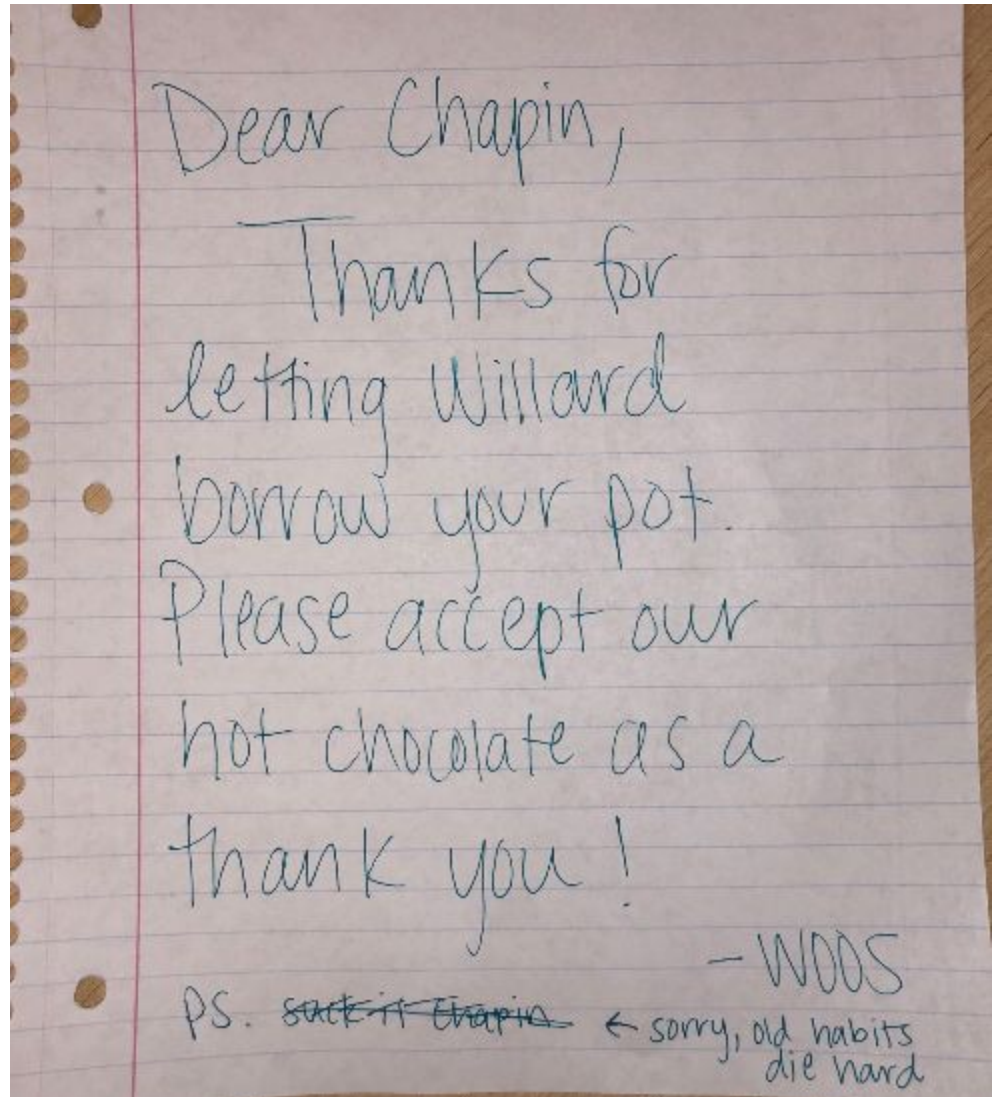 Dear Chapin,
Thanks for
letting Willard
borrow your pot.
Please accept our
hot chocolate as a
thank you!
- WOOS
PS. suck it Chapin ← sorry, old habits
die hard